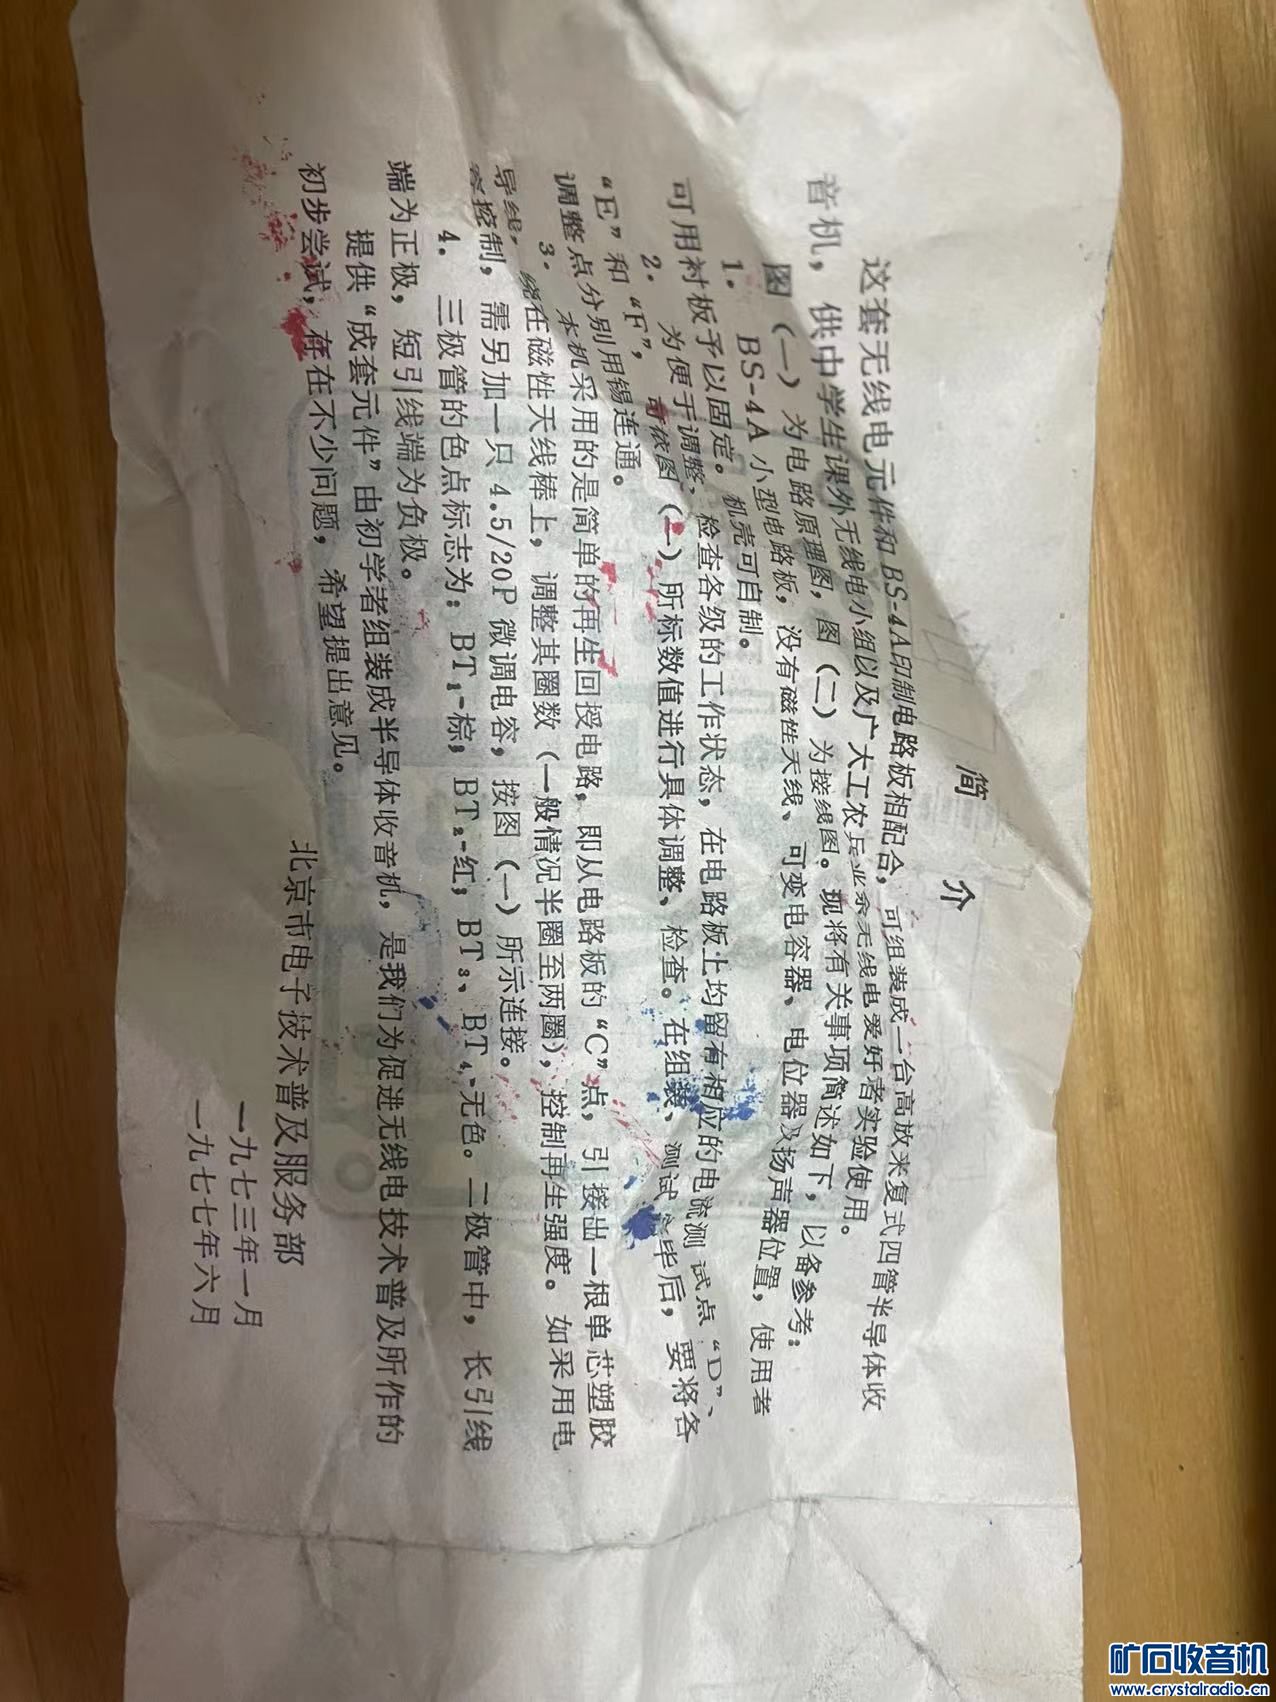 简 介
这套无线电元件和BS-4A印制电路板相配合，可组装成一台高放来复式四管半导体收
音机，供中学生课外无线电小组以及广大工农兵业余无线电爱好者实验使用。
图（一）为电路原理图，图（二）为接线图。现将有关事项简述如下，以备参考：
1． BS-4A 小型电路板，没有磁性天线、可变电容器、电位器及扬声器位置，使用者
可用衬板予以固定。机壳可自制。
2． 为便于调整、检查各级的工作状态，在电路板上均留有相应的电流测试点“D”、
“E”和“F”，可依图（一）所标数值进行具体调整、检查。在组装、测试完毕后，要将各
调整点分别用锡连通。
3．本机采用的是简单的再生回授电路，即从电路板的“C”点，引接出一根单芯塑胶
导线，绕在磁性天线棒上，调整其圈数（一般情况半圈至两圈），控制再生强度。如采用电
容控制，需另加一只4.5/20P微调电容，按图（一）所示连接。
4． 三极管的色点标志为：BT₁-棕；BT₂-红；BT₃、BT₄-无色。二极管中，长引线
端为正极，短引线端为负极。
提供“成套元件”由初学者组装成半导体收音机，是我们为促进无线电技术普及所作的
初步尝试，存在不少问题，希望提出意见。
北京市电子技术普及服务部
一九七三年一月
一九七七年六月
矿石收音机
www.crystalradio.cn